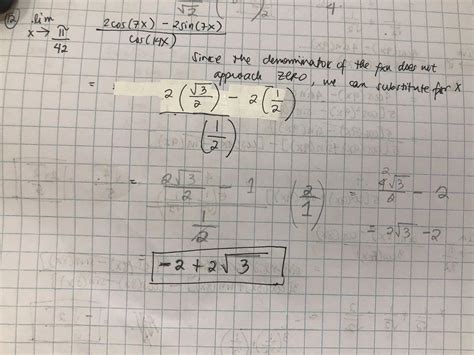 ⑫ lim x→π/42 (2cos(7x) − 2sin(7x))/cos(14x)
Since the denominator of the fxn does not
approach ZERO, we can substitute for x
= (2(√3/2) − 2(1/2))/(1/2)
= (2√3/2 − 1)/(1/2) (2/1) = 4√3/2 − 2
= 2√3 − 2
= −2 + 2√3